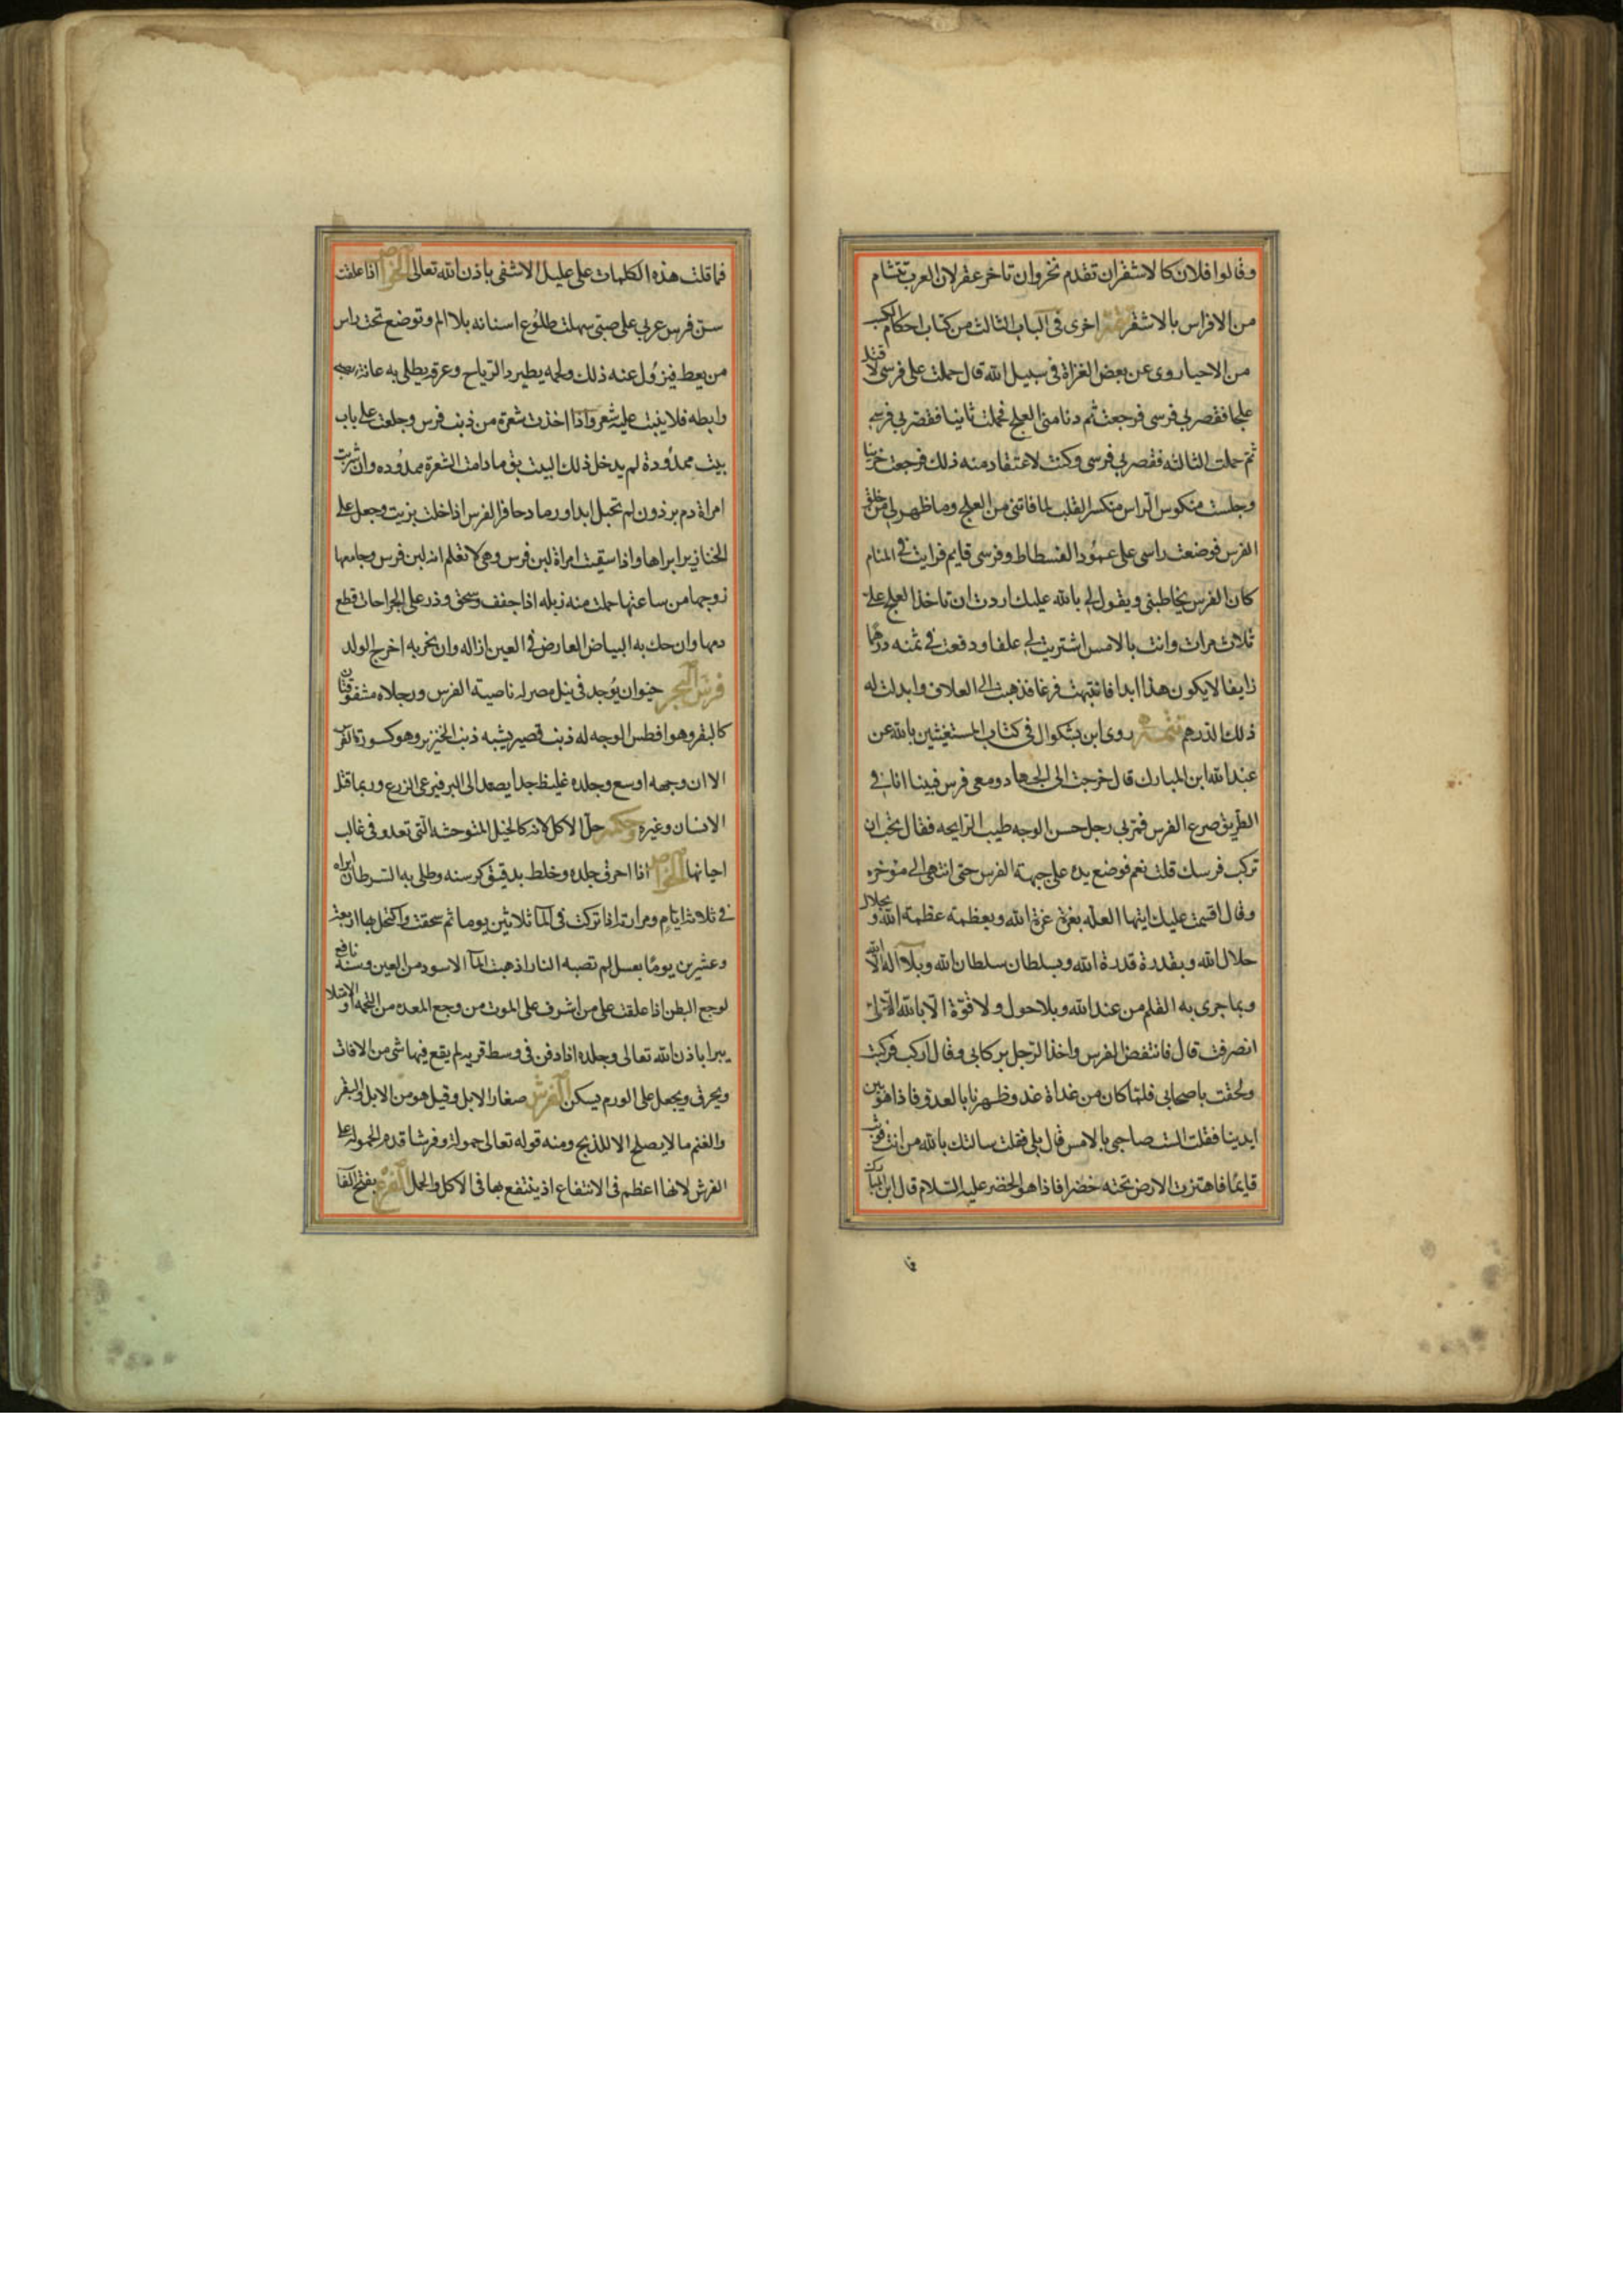 وقالوا فلان كالاشقران تقدم نحر وان تاخر عقر لان العرب تتشام
من الافراس بالاشقر اخرى فى الباب الثالث من كتاب احكام الكسب
من الاحيا روى عن بعض الغزاة فى سبيل الله قال حملت على فرسى لاقتل
علجا فقصر بى فرسى فرجعت ثم دنا منى العلج فحملت ثانيا فقصر بى فرسى
ثم حملت الثالثه فقصر بى فرسى وكنت لا اعتقاد منه ذلك فرجعت حزينا
وجلست منكوس الراس منكسر القلب لما فاتنى من العلج وما ظهر لى من خلق
الفرس فوضعت راسى على عمود الفسطاط وفرسى قايم فرايت فى المنام
كان الفرس يخاطبنى ويقول لى بالله عليك اردت ان تاخذ العلج على
ثلاث مرات وانت بالامس اشتريت لى علفا ودفعت فى ثمنه درهما
زايفا لا يكون هذا ابدا فانتبهت فزعا فذهبت الى العلاف وابدلت له
ذلك الدرهم تتمه روى ابن بشكوال فى كتاب المستغيثين بالله عن
عبد الله ابن المبارك قال خرجت الى الجهاد ومعى فرس فبينا انا فى
الطريق صرع الفرس فمر بى رجل حسن الوجه طيب الرايحه فقال تحب ان
تركب فرسك قلت نعم فوضع يده على جبهة الفرس حتى انتهى الى موخره
وقال اقسمت عليك ايتها العله بعزة عزة الله وبعظمة عظمة الله وبجلال
جلال الله وبقدرة قدرة الله وبسلطان سلطان الله وبلا اله الا الله
وبما جرى به القلم من عند الله وبلا حول ولا قوة الا بالله الا
انصرفت قال فانتفض الفرس واخذ الرجل بركابى وقال اركب فركبت
ولحقت باصحابى فلما كان من غداة غد وظهرنا بالعدو فاذا هو بين
ايدينا فقلت الست صاحبى بالامس قال بلى فقلت سالتك بالله من انت فوثب
قايما فاهتزت الارض تحته خضرا فاذا هو الخضر عليه السلام قال ابن المبارك
فا
فما قلت هذه الكلمات على عليل الا شفى باذن الله تعالى الخواص اذا علقت
سن فرس عربى على صبى سهلت طلوع اسنانه بلا الم وتوضع تحت راس
من يعط فيزول عنه ذلك ولحمه يطير د الرياح وعرقه يطلى به عانة صبى
وابطه فلا ينبت عليه شعر واذا اخذت شعرة من ذنب فرس وجلعت على باب
بيت ممدودة لم يدخل ذلك البيت بق ما دامت الشعرة ممدوده وان شربت
امراة دم برذون لم تحبل ابدا ورماد حافر الفرس اذا خلت بزيت وجعل على
الخنازير ابراها واذا سقيت امراة لبن فرس وهى لا تعلم انه لبن فرس وجامعها
زوجها من ساعتها حملت منه زبله اذا جفف وسحق وذر على الجراحات قطع
دمها وان حك به البياض العارض فى العين ازاله وان بخر به اخرج الولد
فرس البحر حيوان يوجد فى نيل مصر له ناصية الفرس ورجلاه مشقوقتان
كالبقر وهو افطس الوجه له ذنب قصير يشبه ذنب الخنزير وهو كسورة الفرس
الا ان وجهه اوسع وجلده غليظ جدا يصعد الى البر فيرعى الزرع وربما قتل
الانسان وغيره وحكمه حل الاكل لانه كالخيل المتوحشه التى تعدو فى غالب
احيانها الخواص اذا احرق جلده وخلط بدقيق كرسنه وطلى به السرطان ابراه
فى ثلاثة ايام ومرارته اذا تركت فى الما ثلاثين يوما ثم سحقت واكتحل بها اربعة
وعشرين يوما بعسل لم تصبه النار اذهبت الما الاسود من العين وسنه نافع
لوجع البطن اذا علقت على من اشرف على الموت من وجع المعده من التخمه او الامتلا
يبرا باذن الله تعالى وجلده اذا دفن فى وسط قريه لم يقع فيها شى من الافات
ويحرق ويجعل على الورم يسكن الفرش صغار الابل وقيل هو من الابل والبقر
والغنم ما لا يصلح الا للذبح ومنه قوله تعالى حمولة وفرشا قدم الحموله على
الفرش لانها اعظم فى الانتفاع اذ ينتفع بها فى الاكل والحمل الفرع بفتح الفا